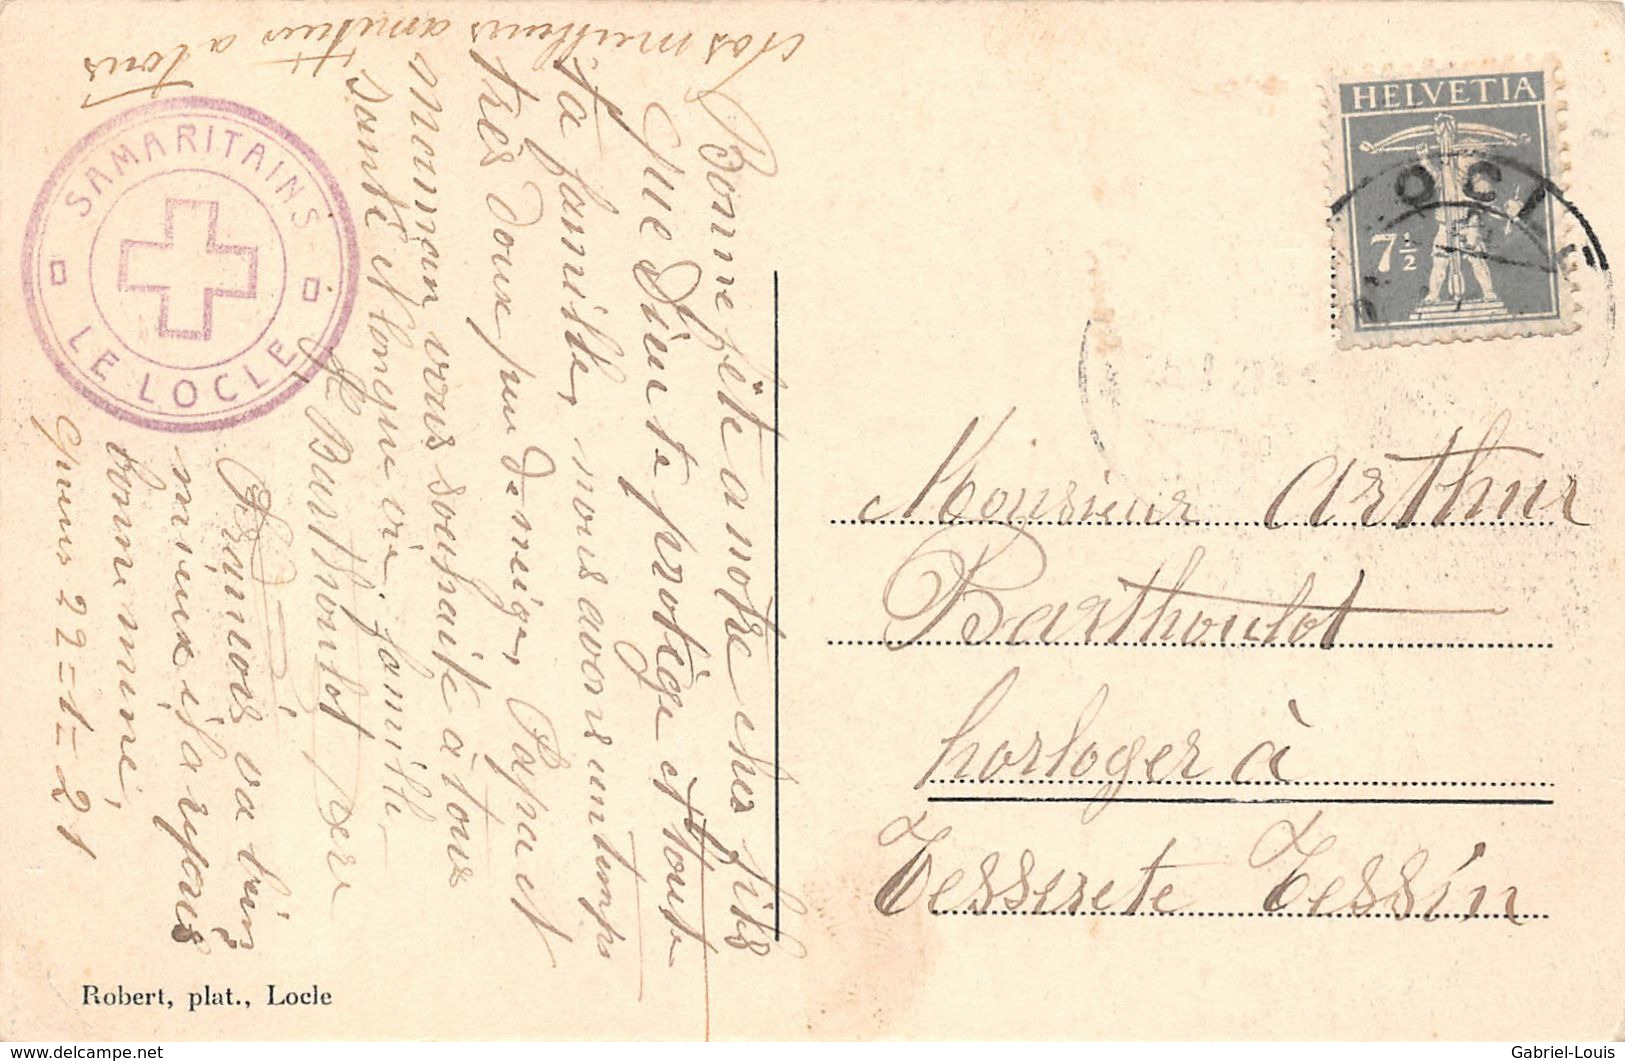 Bonne fête a notre cher fils
que Dieu te protège et toute
ta famille, nous avons un temps
très doux peu de neige, Papa et
Maman vous souhaite à tous
santé et longue vie, famille
Barthoulot père
va bien
mieux il a repris
bonne mine,
22=1=21
Nos meilleurs amitiés a tous
SAMARITAINS
LE LOCLE
Robert, plat., Locle
HELVETIA
7½
OCL
Monsieur Arthur
Barthoulot
horloger à
Tesserete Tessin
delcampe.net
Gabriel-Louis